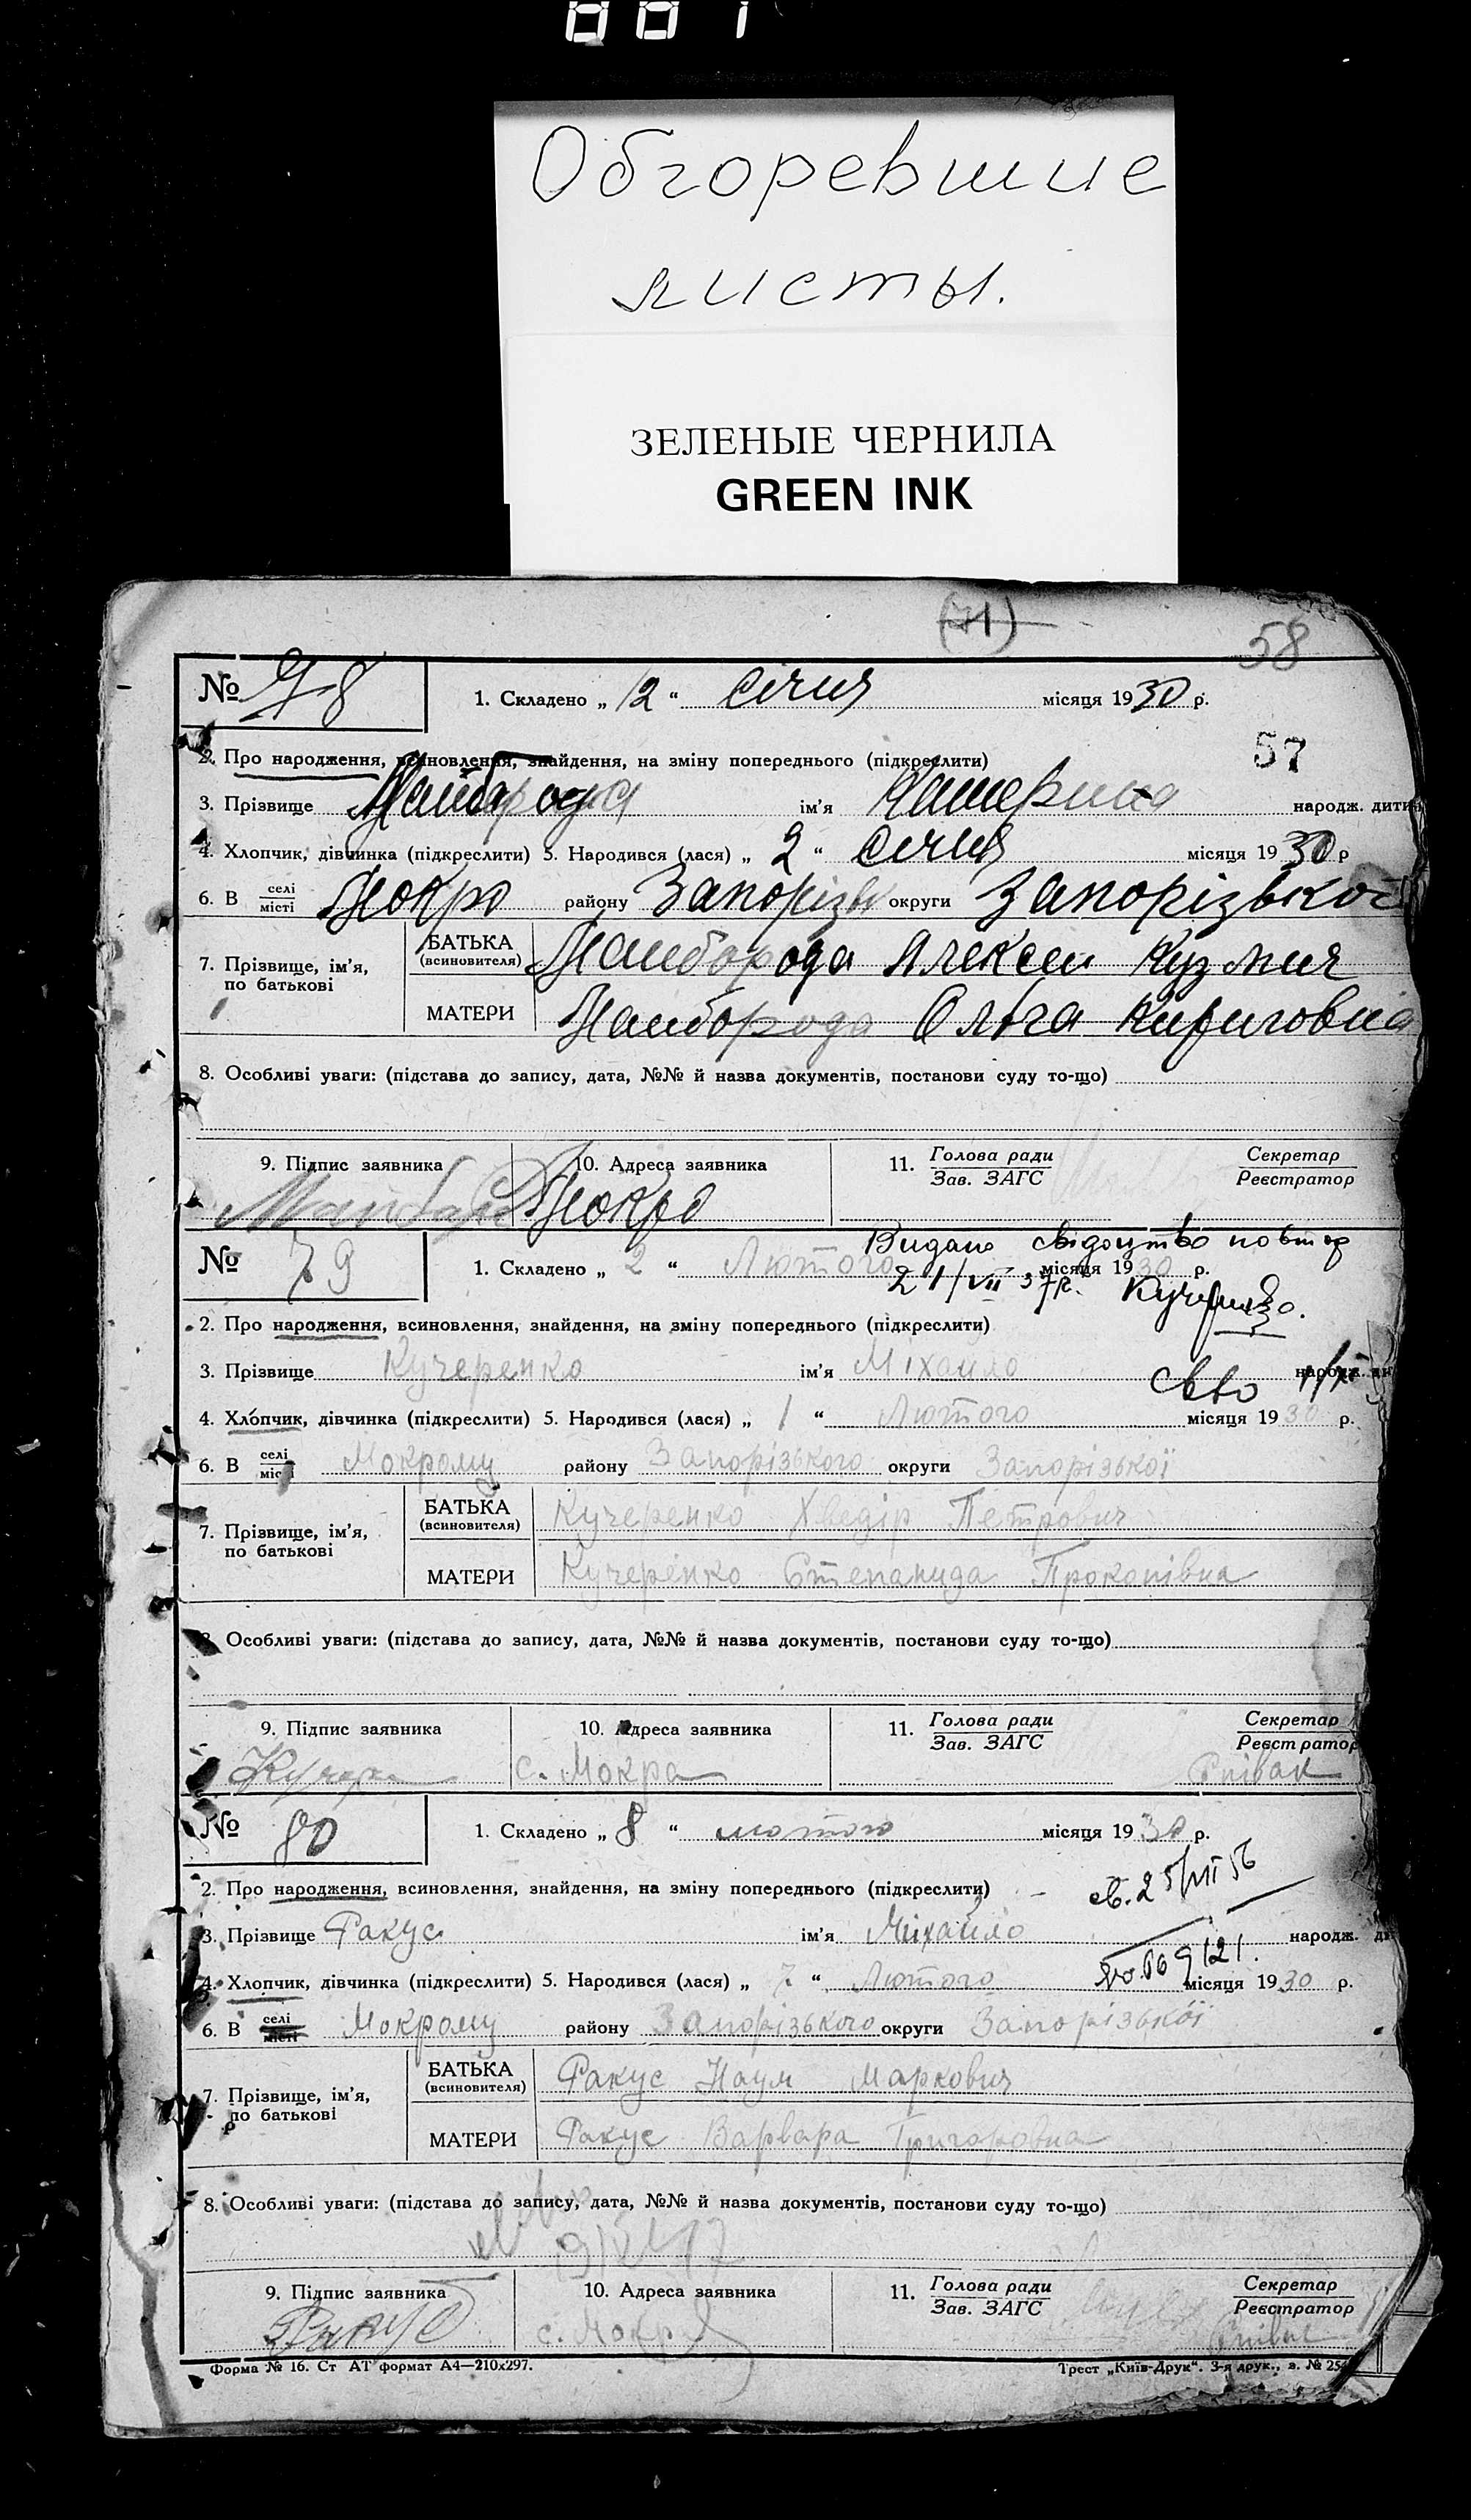 001
Обгоревшие
листы.
ЗЕЛЕНЫЕ ЧЕРНИЛА
GREEN INK
(71)
58
№ 78 1. Складено „ 12 “ січня місяця 1930 р.
57
2. Про народження, всиновлення, знайдення, на зміну попереднього (підкреслити)
3. Прізвище Майборода ім'я Катерина народж. дити
4. Хлопчик, дівчинка (підкреслити) 5. Народився (лася) „ 2 “ січня місяця 1930 р
6. В селі місті Мокро району Запорізьк округи Запорізькоі
7. Прізвище, ім'я, по батькові
БАТЬКА (всиновителя) Майборода Алексеи Кузмич
МАТЕРИ Майборода Ольга
8. Особливі уваги: (підстава до запису, дата, №№ й назва документів, постанови суду то-що)
9. Підпис заявника 10. Адреса заявника 11. Голова ради Зав. ЗАГС Секретар Реєстратор
Мокро
Видано свідоцтво повтор
№ 79 1. Складено „ 2 “ Лютого місяця 1930 р.
21/VII 37р. Кучеренко.
2. Про народження, всиновлення, знайдення, на зміну попереднього (підкреслити)
3. Прізвище Кучеренко ім'я Міхайло народж. ди
4. Хлопчик, дівчинка (підкреслити) 5. Народився (лася) „ 1 “ Лютого місяця 1930 р.
6. В селі місті Мокрому району Запорізького округи Запорізької
7. Прізвище, ім'я, по батькові
БАТЬКА (всиновителя) Кучеренко Хведір Петрович
МАТЕРИ Кучеренко Степанида Прокопівна
8. Особливі уваги: (підстава до запису, дата, №№ й назва документів, постанови суду то-що)
9. Підпис заявника 10. Адреса заявника 11. Голова ради Зав. ЗАГС Секретар Реєстратор
с. Мокра Співак
№ 80 1. Складено „ 8 “ лютого місяця 1930 р.
2. Про народження, всиновлення, знайдення, на зміну попереднього (підкреслити)
3. Прізвище Факус ім'я Міхайло народж. ди
4. Хлопчик, дівчинка (підкреслити) 5. Народився (лася) „ 7 “ Лютого місяця 1930 р.
6. В селі місті Мокрому району Запорізького округи Запорізької
7. Прізвище, ім'я, по батькові
БАТЬКА (всиновителя) Факус Наум Маркович
МАТЕРИ Факус Варвара Григоровна
8. Особливі уваги: (підстава до запису, дата, №№ й назва документів, постанови суду то-що)
9. Підпис заявника 10. Адреса заявника 11. Голова ради Зав. ЗАГС Секретар Реєстратор
Факус с. Мокра
Форма № 16. Ст АТ формат А4—210х297. Трест „Київ-Друк“. 3-я друк., з. № 254